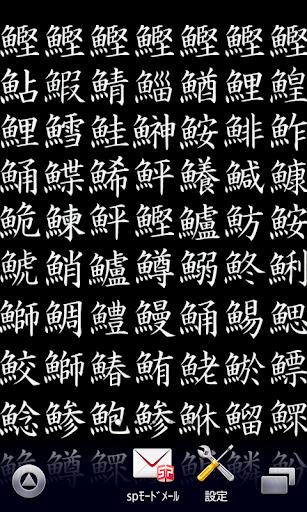 鰹鰹鰹鰹鰹鰹鰹
鮎鰕鯖鯔鰌鯉鰉
鯉鱈鮭鰰鮟鯡鮓
鯒鰈鯑鮃鱶鰄鱇
鮠鰊鮃鰹鱸魴鮟
鯱鮹鱸鱒鰯鮗鯏
鰤鯛鱧鰻鯒鯣鰓
鮫鰤鰆鮪鮱鯲鱗
鯰鯵鮑鯵鮴鰡鰥
spﾓｰﾄﾞﾒｰﾙ 設定